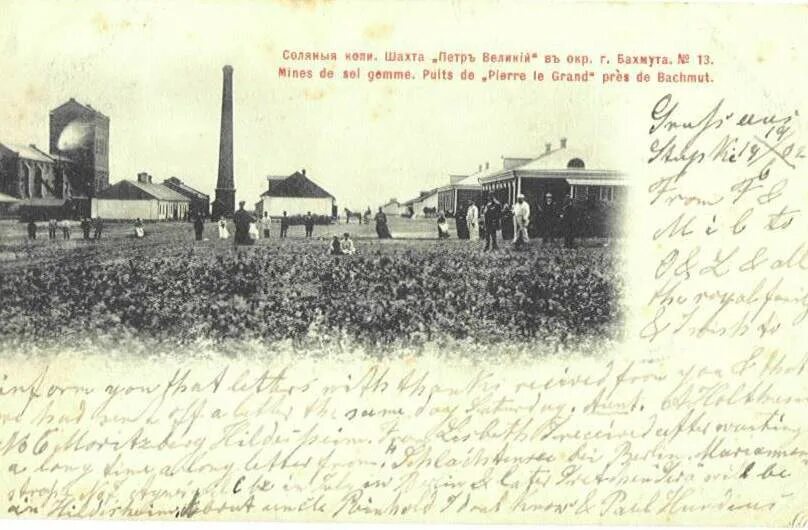 Соляныя копи. Шахта „Петръ Великій“ въ окр. г. Бахмута. № 13.
Mines de sel gemme. Puits de „Pierre le Grand“ près de Bachmut.
Gruss aus
Stupki 19
From F &
M to
O & L & all
the royal
& I wish to
inform you that letters with thanks received from you & that
we had sent off a letter the same day Saturday. Aunt.
No 6 Moritzberg Hildesheim. From Lisbeth I received after waiting
a long time a long letter from. "Schlachtensee bei Berlin.
be in July in & later will be
in Hildesheim. About uncle Reinhold I dont know & Paul